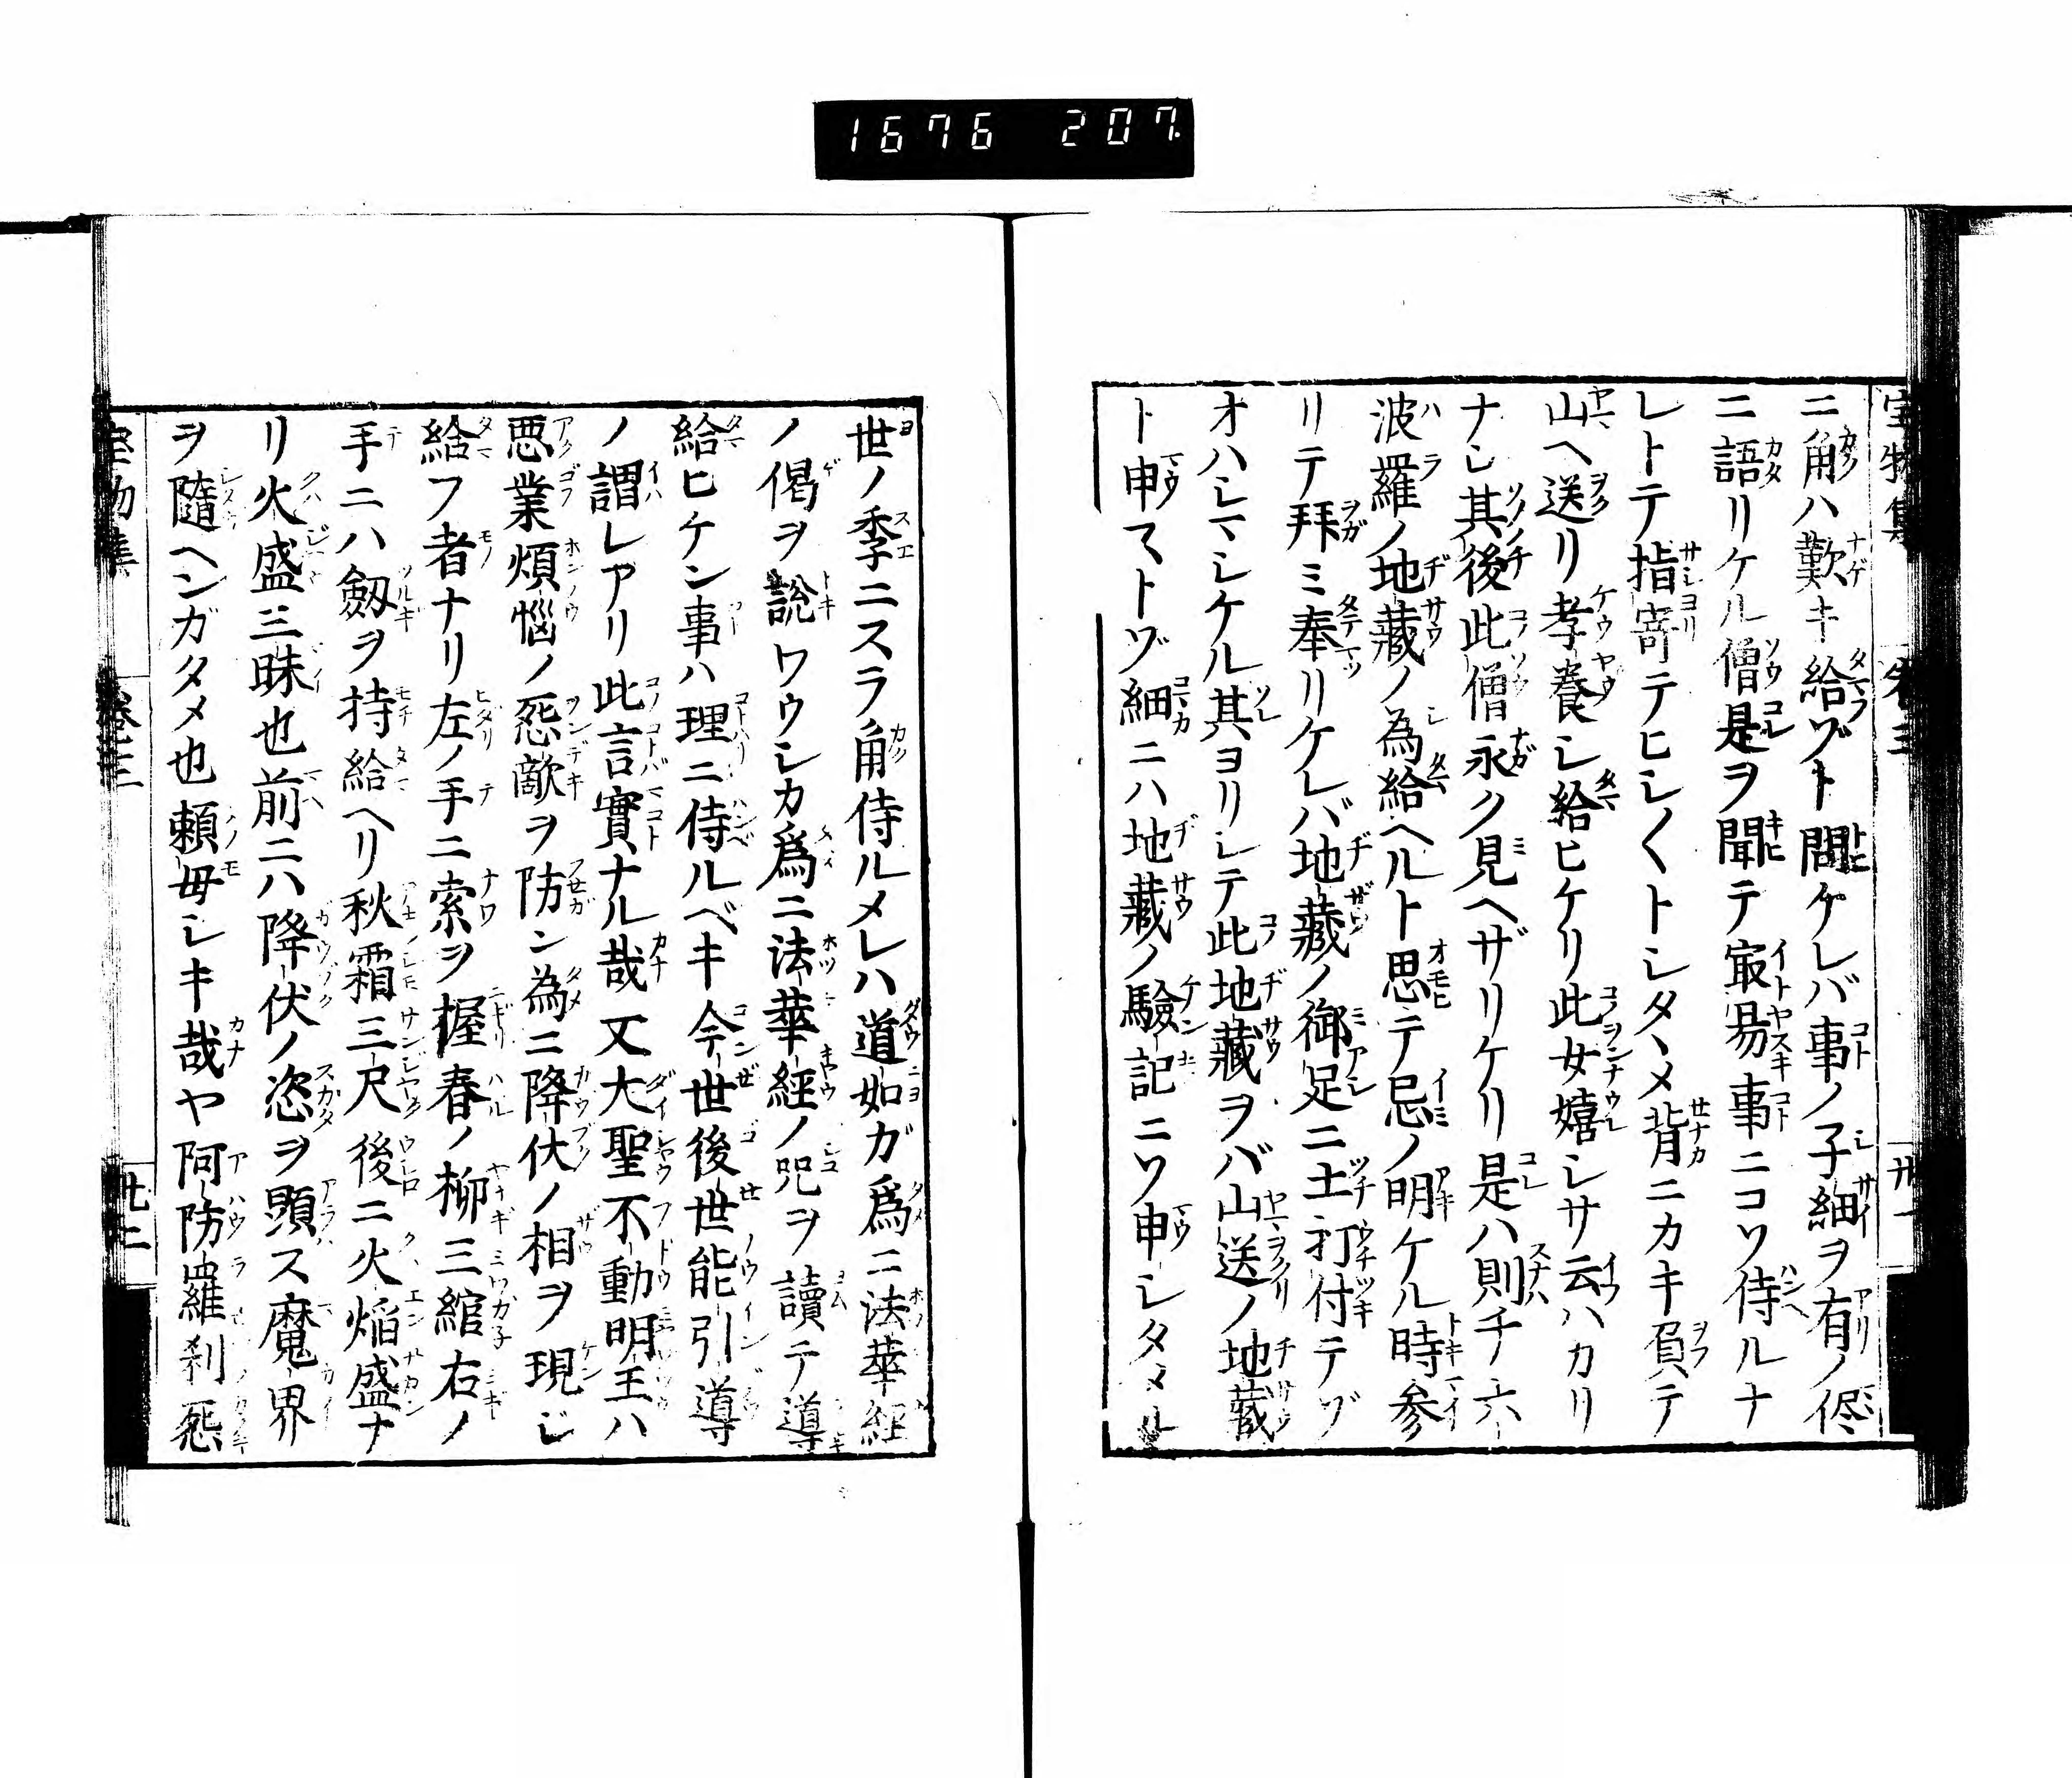 1676 207.
宝物集 巻三 卅一
ニ角ハ歎キ給ゾト問ケレバ事ノ子細ヲ有ノ侭
ニ語リケル僧是ヲ聞テ最易事ニコソ侍ルナ
レトテ指寄テヒシ〱トシタヽメ背ニカキ負テ
山ヘ送リ孝養シ給ヒケリ此女嬉シサ云ハカリ
ナシ其後此僧永ク見ヘザリケリ是ハ則チ六
波羅ノ地藏ノ為給ヘルト思テ忌ノ明ケル時参
リテ拜ミ奉リケレバ地藏ノ御足ニ土打付テゾ
オハシマシケル其ヨリシテ此地藏ヲバ山送ノ地藏
ト申マトゾ細ニハ地藏ノ驗記ニソ申シタメル
世ノ季ニスラ角侍ルメレハ道如ガ爲ニ法華経
ノ偈ヲ説ワウシカ爲ニ法華經ノ咒ヲ讀テ導
給ヒケン事ハ理ニ侍ルベキ今世後世能引導
ノ謂レアリ此言實ナル哉又大聖不動明王ハ
悪業煩惱ノ怨敵ヲ防ン為ニ降伏ノ相ヲ現じ
給フ者ナリ左ノ手ニ索ヲ握春ノ柳三綰右ノ
手ニハ劔ヲ持給ヘリ秋霜三尺後ニ火焔盛ナ
リ火盛三昧也前ニハ降伏ノ恣ヲ顕ス魔界
ヲ隨ヘンガタメ也頼毋シキ哉ヤ阿防羅刹怨
宝物集 巻三 卅二